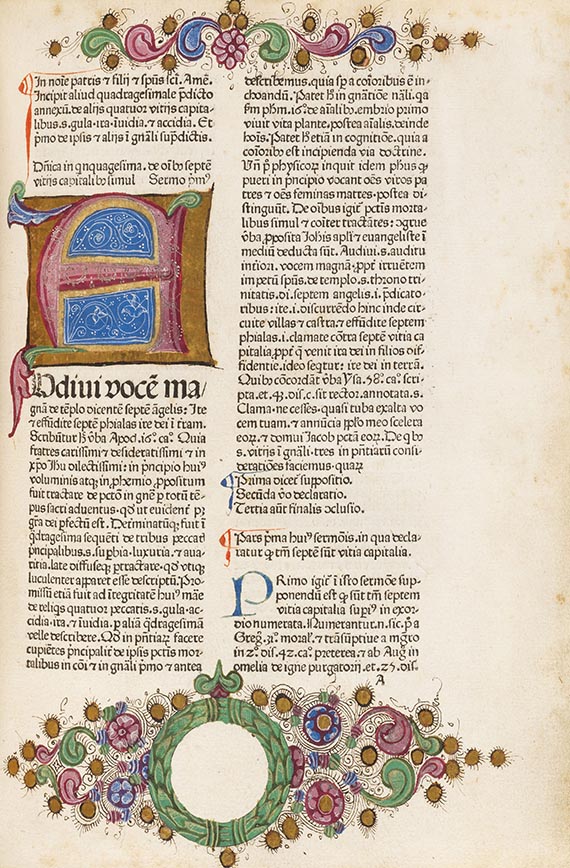 In noīe patris & filij & spūs scī. Amē.
Incipit aliud quadragesimale p̄dicto
annexū. de alijs quatuor vitijs capita-
libus. s. gula. ita. īuidia. & accidia. Et
pmo de ipsis & alijs ī gnāli sup̄dictis.
Dnīca in qnquagesima. de oībꝰ septē
vitijs capitalibꝰ simul Sermo pmꝰ
Udiui vocē ma/
gnā de tēplo dicentē septē āgelis: Ite
& effūdite septē phialas ire dei ī t̄ram.
Scribūtur h̄ v̄ba Apoc. 16.º ca.º Quia
fratres carissimi & desideratissimi & in
xp̄o Ihu dilectissimi: in p̄ncipio huiꝰ
voluminis atqꝫ in, phemio, ppositum
fuit tractare de pctō in gnē p totū tē-
pus sacri aduentus. qd ut euident p
gr̄a dei pfectū est. Det̄minatūqꝫ fuit ī
q̄dragesima sequēti de tribus peccat̄
p̄ncipalibus. s. supbia. luxuria. & aua-
ritia. late diffuseqꝫ ptractare. qd vtiqꝫ
luculenter apparet esse descriptū. Pro-
missū etiā fuit ad ītegritatē huiꝰ mae
de reliqs quatuor peccatis. s. gula. ac-
cidia. ita. & īuidia. p aliā q̄dragesimā
velle describere. Qd in p̄ntiar̄ facere
cupiētes p̄ncipalit̄ de ipsis pctis mor-
talibus in cōi & in gnāli pmo & antea
describemus. quia sp a cōioribus ē in-
choandū. Patet h̄ in gnātiōe nāli. qa
fm phm. 16.º de aīalibꝰ. embrio primo
viuit vita plante. postea aīalis. deinde
hoīs. Patet h̄ etiā in cognitiōe. quia a
cōioribꝰ est incipienda via doctrine.
Vn̄ p̄ physicorꝫ inquit idem phus qꝫ
pueri in p̄ncipio vocant oēs viros pa
tres & oēs feminas matres. postea di-
stinguūt. De oībus igit̄ pctis morta-
libus simul & cōiter tractātes: ꝯgrue
v̄ba, pposita Iohis apsī & euangeliste ī
mediū deducta sūt. Audiui. s. auditu
intiori. vocem magnā, ppt̄ irruētem
impetū spūs. de templo. s. throno tri-
nitatis. di. septem angelis. i. p̄dicato-
ribus: ite. i. discurredo hinc inde cir-
cuite villas & castra. & effūdite septem
phialas. i. clamate cōtra septē vitia ca
pitalia, ppt̄ q̄ venit ita dei in filios dif-
fidentie. ideo seqt̄ur: ite dei in terrā.
Quibꝰ cōcordāt v̄ba Ysa. 58.º ca. scri-
pta. et. 43. dis. c. sit rector. annotata. s.
Clama. ne cesses. quasi tuba exalta vo
cem tuam. & annūcia pplo meo scelera
eorꝫ. & domui Jacob pctā eorꝫ. De qbꝰ
s. vitijs ī gnāli. tres in p̄ntiarū consi-
derātiōes faciemus. quarꝫ
Prima dicet̄ suppositio.
Secūda v̄o declaratio.
Tertia aūt finalis ꝯclusio.
Pars p̄ma huiꝰ sermōis. in qua decla-
ratur qꝫ tm̄ septē sūt vitia capitalia.
PRimo igit̄ ī isto sermōe sup-
ponendū est qꝫ sūt tm̄ septem
vitia capitalia supiꝰ in exor-
dio numerata. Numerantur. n. sic. p a
Greg. 31.º moral. & trāsūptiue a mgro
in 2.º dis. 42. ca.º preterea. & ab Aug.º in
omelia de igne purgatorij. et. 25. dis.
A